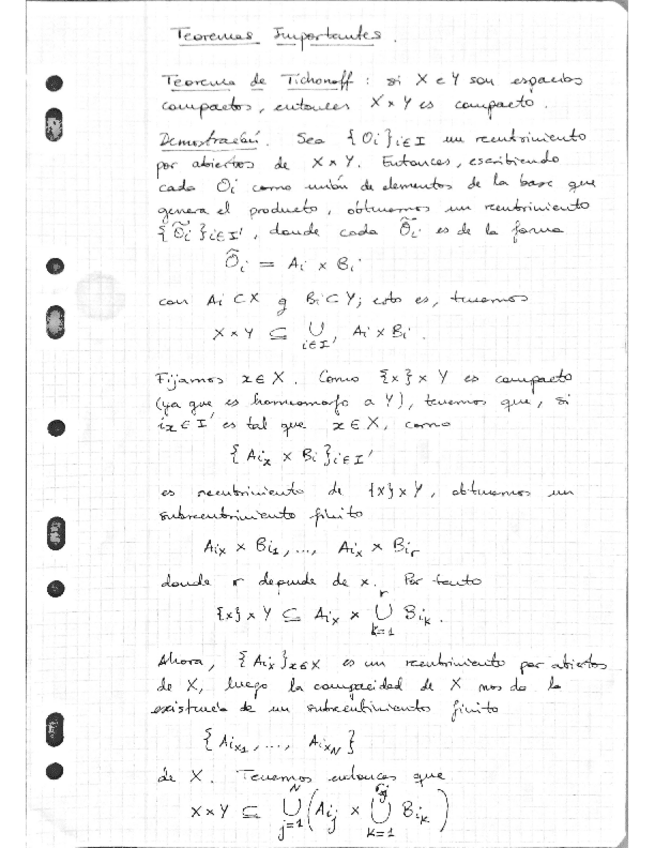 Teoremas Importantes.
Teorema de Tichonoff: si X e Y son espacios
compactos, entonces X × Y es compacto.
Demostración. Sea {Oi}i∈I un recubrimiento
por abiertos de X × Y. Entonces, escribiendo
cada Oi como unión de elementos de la base que
genera el producto, obtenemos un recubrimiento
{Õi}i∈I', donde cada Õi es de la forma
Õi = Ai × Bi
con Ai ⊂ X y Bi ⊂ Y; esto es, tenemos
X × Y ⊆ ∪i∈I' Ai × Bi.
Fijamos x ∈ X. Como {x} × Y es compacto
(ya que es homeomorfo a Y), tenemos que, si
ix ∈ I' es tal que x ∈ X, como
{Aix × Bi}i∈I'
es recubrimiento de {x} × Y, obtenemos un
subrecubrimiento finito
Aix × Bi1, ..., Aix × Bir
donde r depende de x. Por tanto
{x} × Y ⊆ Aix × ∪k=1^r Bik.
Ahora, {Aix}x∈X es un recubrimiento por abiertos
de X, luego la compacidad de X nos da la
existencia de un subrecubrimiento finito
{Aix1, ..., AixN}
de X. Tenemos entonces que
X × Y ⊆ ∪j=1^N (Aij × ∪k=1^rj Bik)